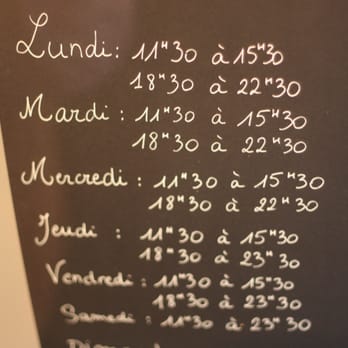 Lundi: 11H30 à 15H30
18H30 à 22H30
Mardi: 11H30 à 15H30
18H30 à 22H30
Mercredi: 11H30 à 15H30
18H30 à 22H30
Jeudi: 11H30 à 15H30
18H30 à 23H30
Vendredi: 11H30 à 15H30
18H30 à 23H30
Samedi: 11H30 à 23H30